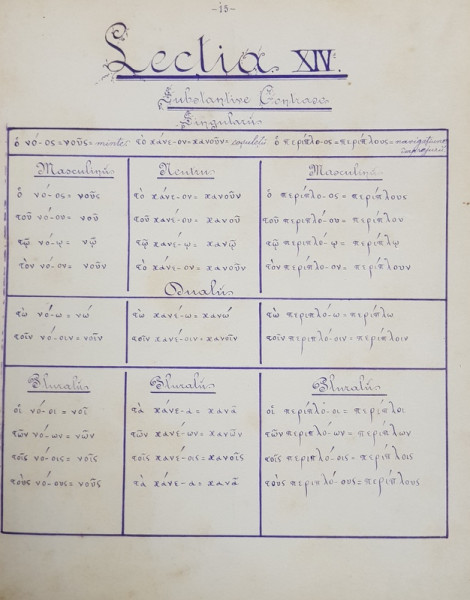 -15-
Lectia XIV.
Substantive Contrase
Singularŭ
ὁ νό-ος=νοῦς=mintea τὸ χάνε-ον=χανοῦν= ὁ περίπλο-ος=περίπλους=
Masculinŭ Neutru Masculinŭ
ὁ νό-ος= νοῦς τὸ χάνε-ον= χανοῦν ὁ περίπλο-ος= περίπλους
τοῦ νό-ου= νοῦ τοῦ χανέ-ου= χανοῦ τοῦ περιπλό-ου= περίπλου
τῷ νό-ῳ= νῷ τῷ χανέ-ῳ= χανῷ τῷ περιπλό-ῳ= περίπλῳ
τὸν νό-ον= νοῦν τὸ χάνε-ον= χανοῦν τὸν περίπλο-ον= περίπλουν
Dualŭ
τὼ νό-ω= νώ τὼ χανέ-ω= χανώ τὼ περιπλό-ω= περίπλω
τοῖν νό-οιν= νοῖν τοῖν χανέ-οιν= χανοῖν τοῖν περιπλό-οιν= περίπλοιν
Pluralŭ Pluralŭ Pluralŭ
οἱ νό-οι= νοῖ τὰ χάνε-α= χανᾶ οἱ περίπλο-οι= περίπλοι
τῶν νό-ων= νῶν τῶν χανέ-ων= χανῶν τῶν περιπλό-ων= περίπλων
τοῖς νό-οις= νοῖς τοῖς χανέ-οις= χανοῖς τοῖς περιπλό-οις= περίπλοις
τοὺς νό-ους= νοῦς τὰ χάνε-α= χανᾶ τοὺς περιπλό-ους= περίπλους